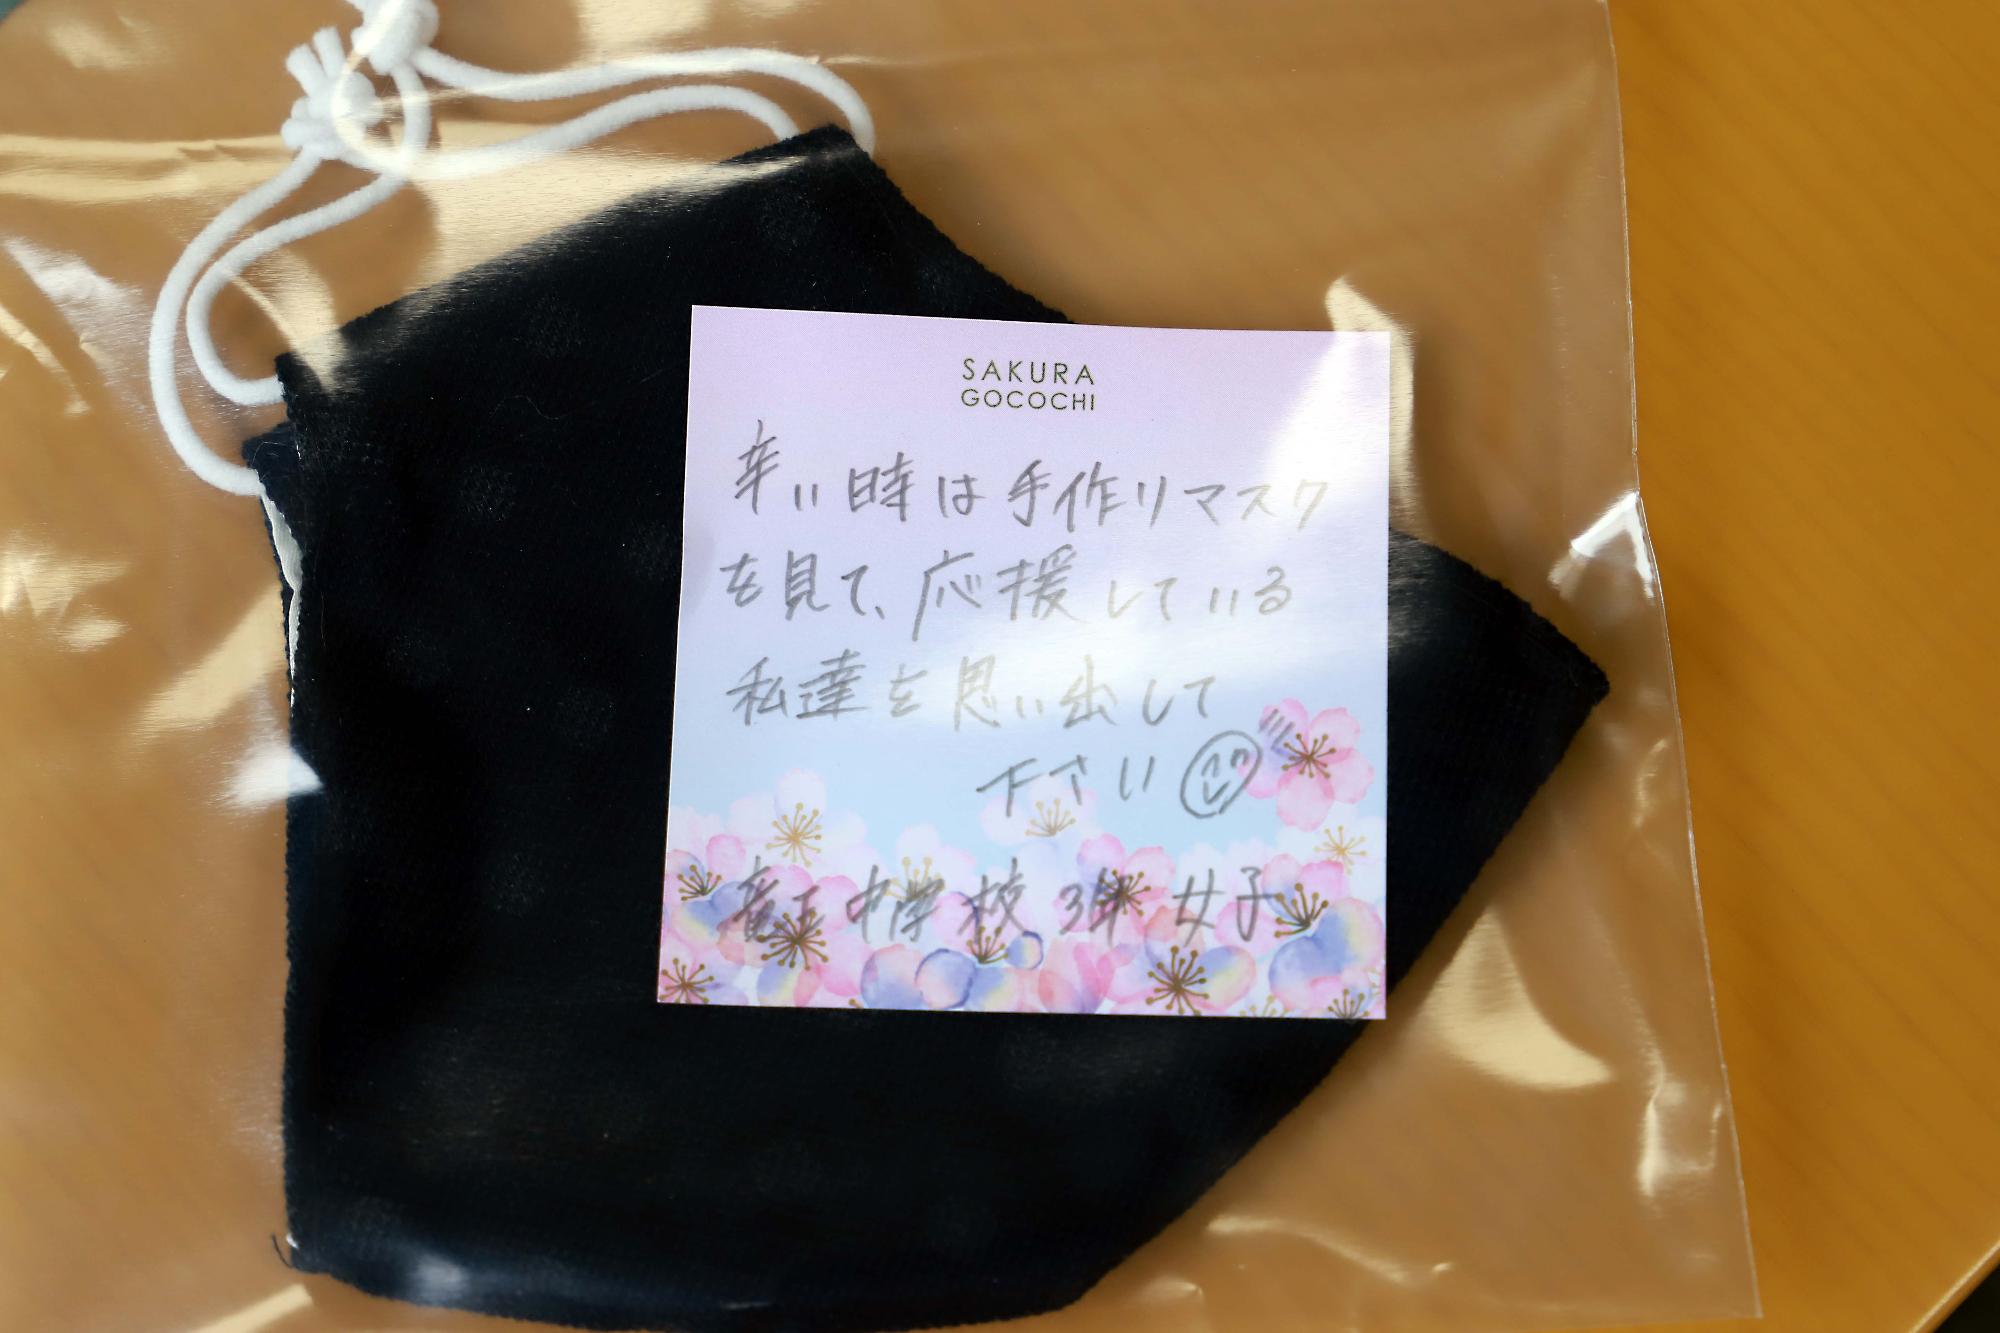 SAKURA
GOCOCHI
辛い時は手作りマスク
を見て、応援している
私達を思い出して
下さい
竜王中学校 3年 女子